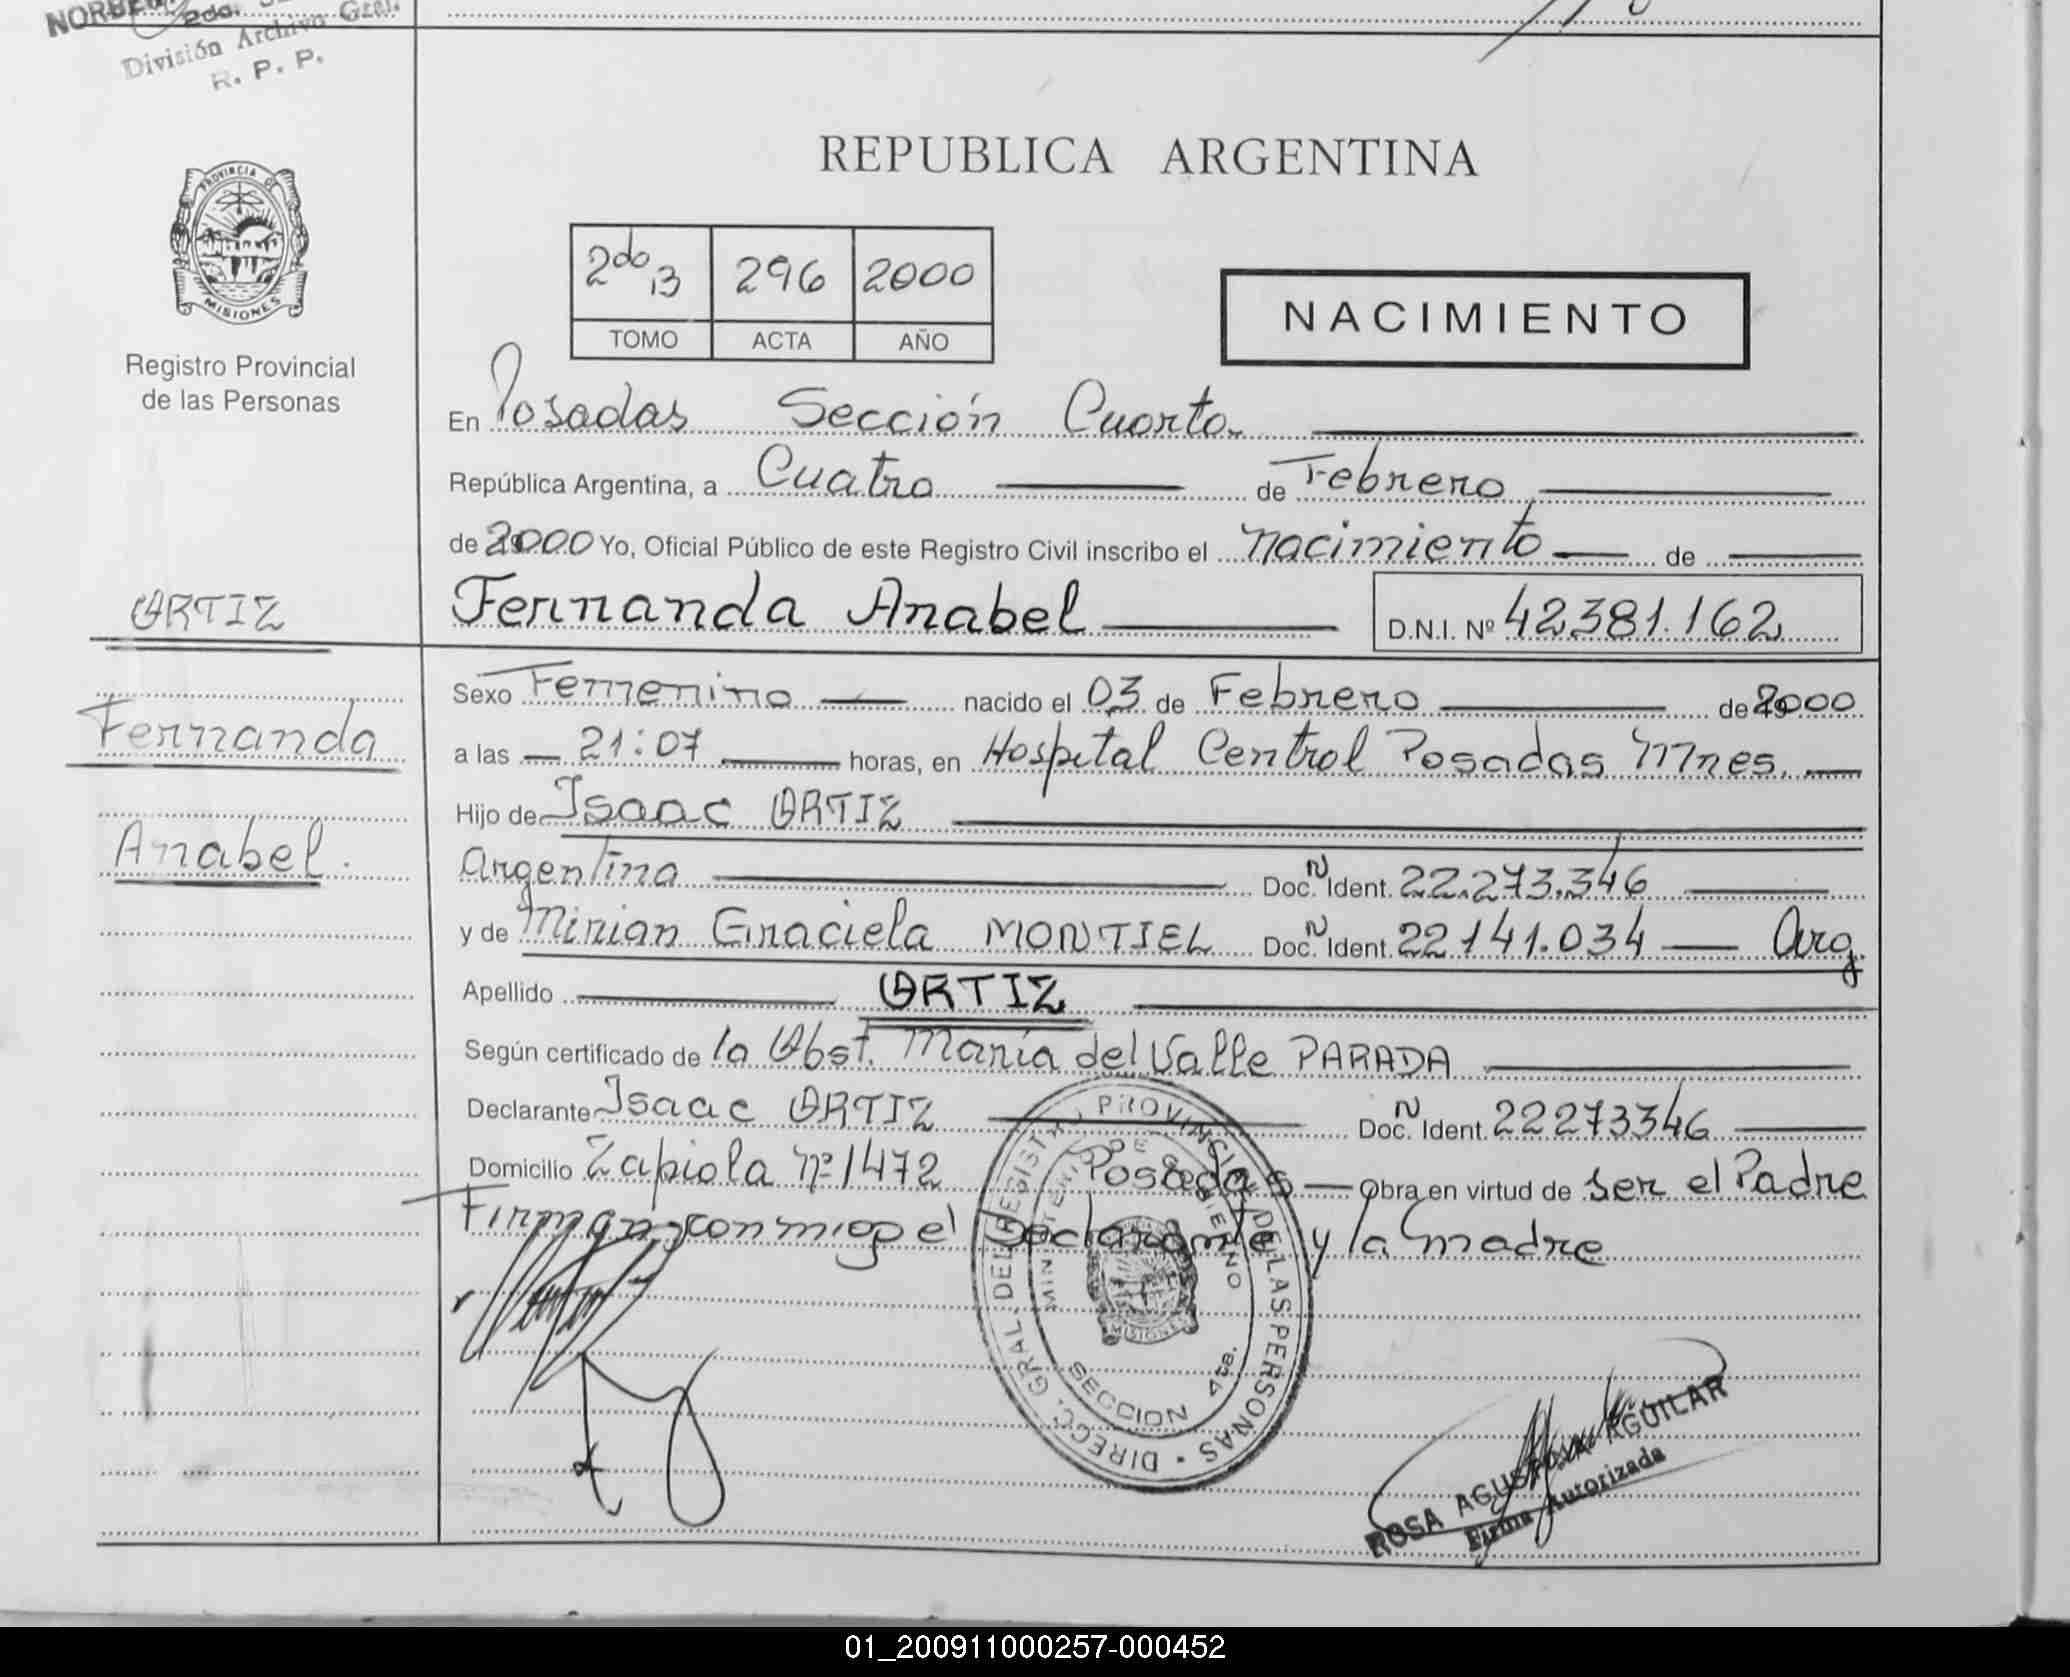 División Archivo Gral.
R. P. P.
PROVINCIA DE
MISIONES
Registro Provincial
de las Personas
REPUBLICA ARGENTINA
2do B 296 2000
TOMO ACTA AÑO
NACIMIENTO
En Posadas Sección Cuarta
República Argentina, a Cuatro de Febrero
de 2000 Yo, Oficial Público de este Registro Civil inscribo el nacimiento de
ORTIZ
Fernanda Anabel D.N.I. Nº 42381.162
Sexo Femenino nacido el 03 de Febrero de 2000
Fernanda
a las 21:07 horas, en Hospital Central Posadas Mnes.
Hijo de Isaac ORTIZ
Anabel.
Argentina Doc. N Ident. 22.273.346
y de Mirian Graciela MONTIEL Doc. N Ident. 22141.034 Arg.
Apellido ORTIZ
Según certificado de la Obst. María del Valle PARADA
Declarante Isaac ORTIZ Doc. N Ident. 22273346
Domicilio Zapiola Nº 1472 Posadas Obra en virtud de ser el Padre
Firman conmigo el Declarante y la madre
DIRECC. GRAL. DEL REGISTRO PROVINCIAL DE LAS PERSONAS
MINISTERIO DE GOBIERNO
MISIONES
SECCION 4ta.
ROSA AGUSTINA AGUILAR
Firma Autorizada
01_200911000257-000452